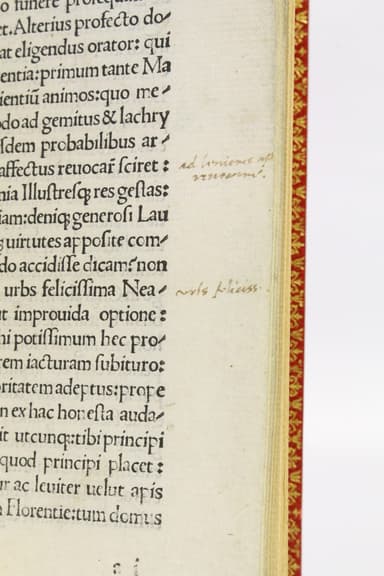 o funere
et. Alterius profecto do-
at eligendus orator: qui
entia: primum tante Ma
ientiū animos: quo me-
do ad gemitus & lachry
sdem probabilibus ar-
affectus reuocar̄ sciret:
nia Illustresq; res gestas:
iam: deniq; generosi Lau
uirtutes apposite com-
do accidisse dicam: non
urbs felicissima Nea-
ut improuida optione:
ni potissimum hec pro-
rem iacturam subituro:
oritatem adeptus: prope
n ex hac honesta auda-
it utcunq; tibi principi
quod principi placet:
ur ac leuiter uelut apis
a Florentie: tum domus
a i
urbs feliciss.